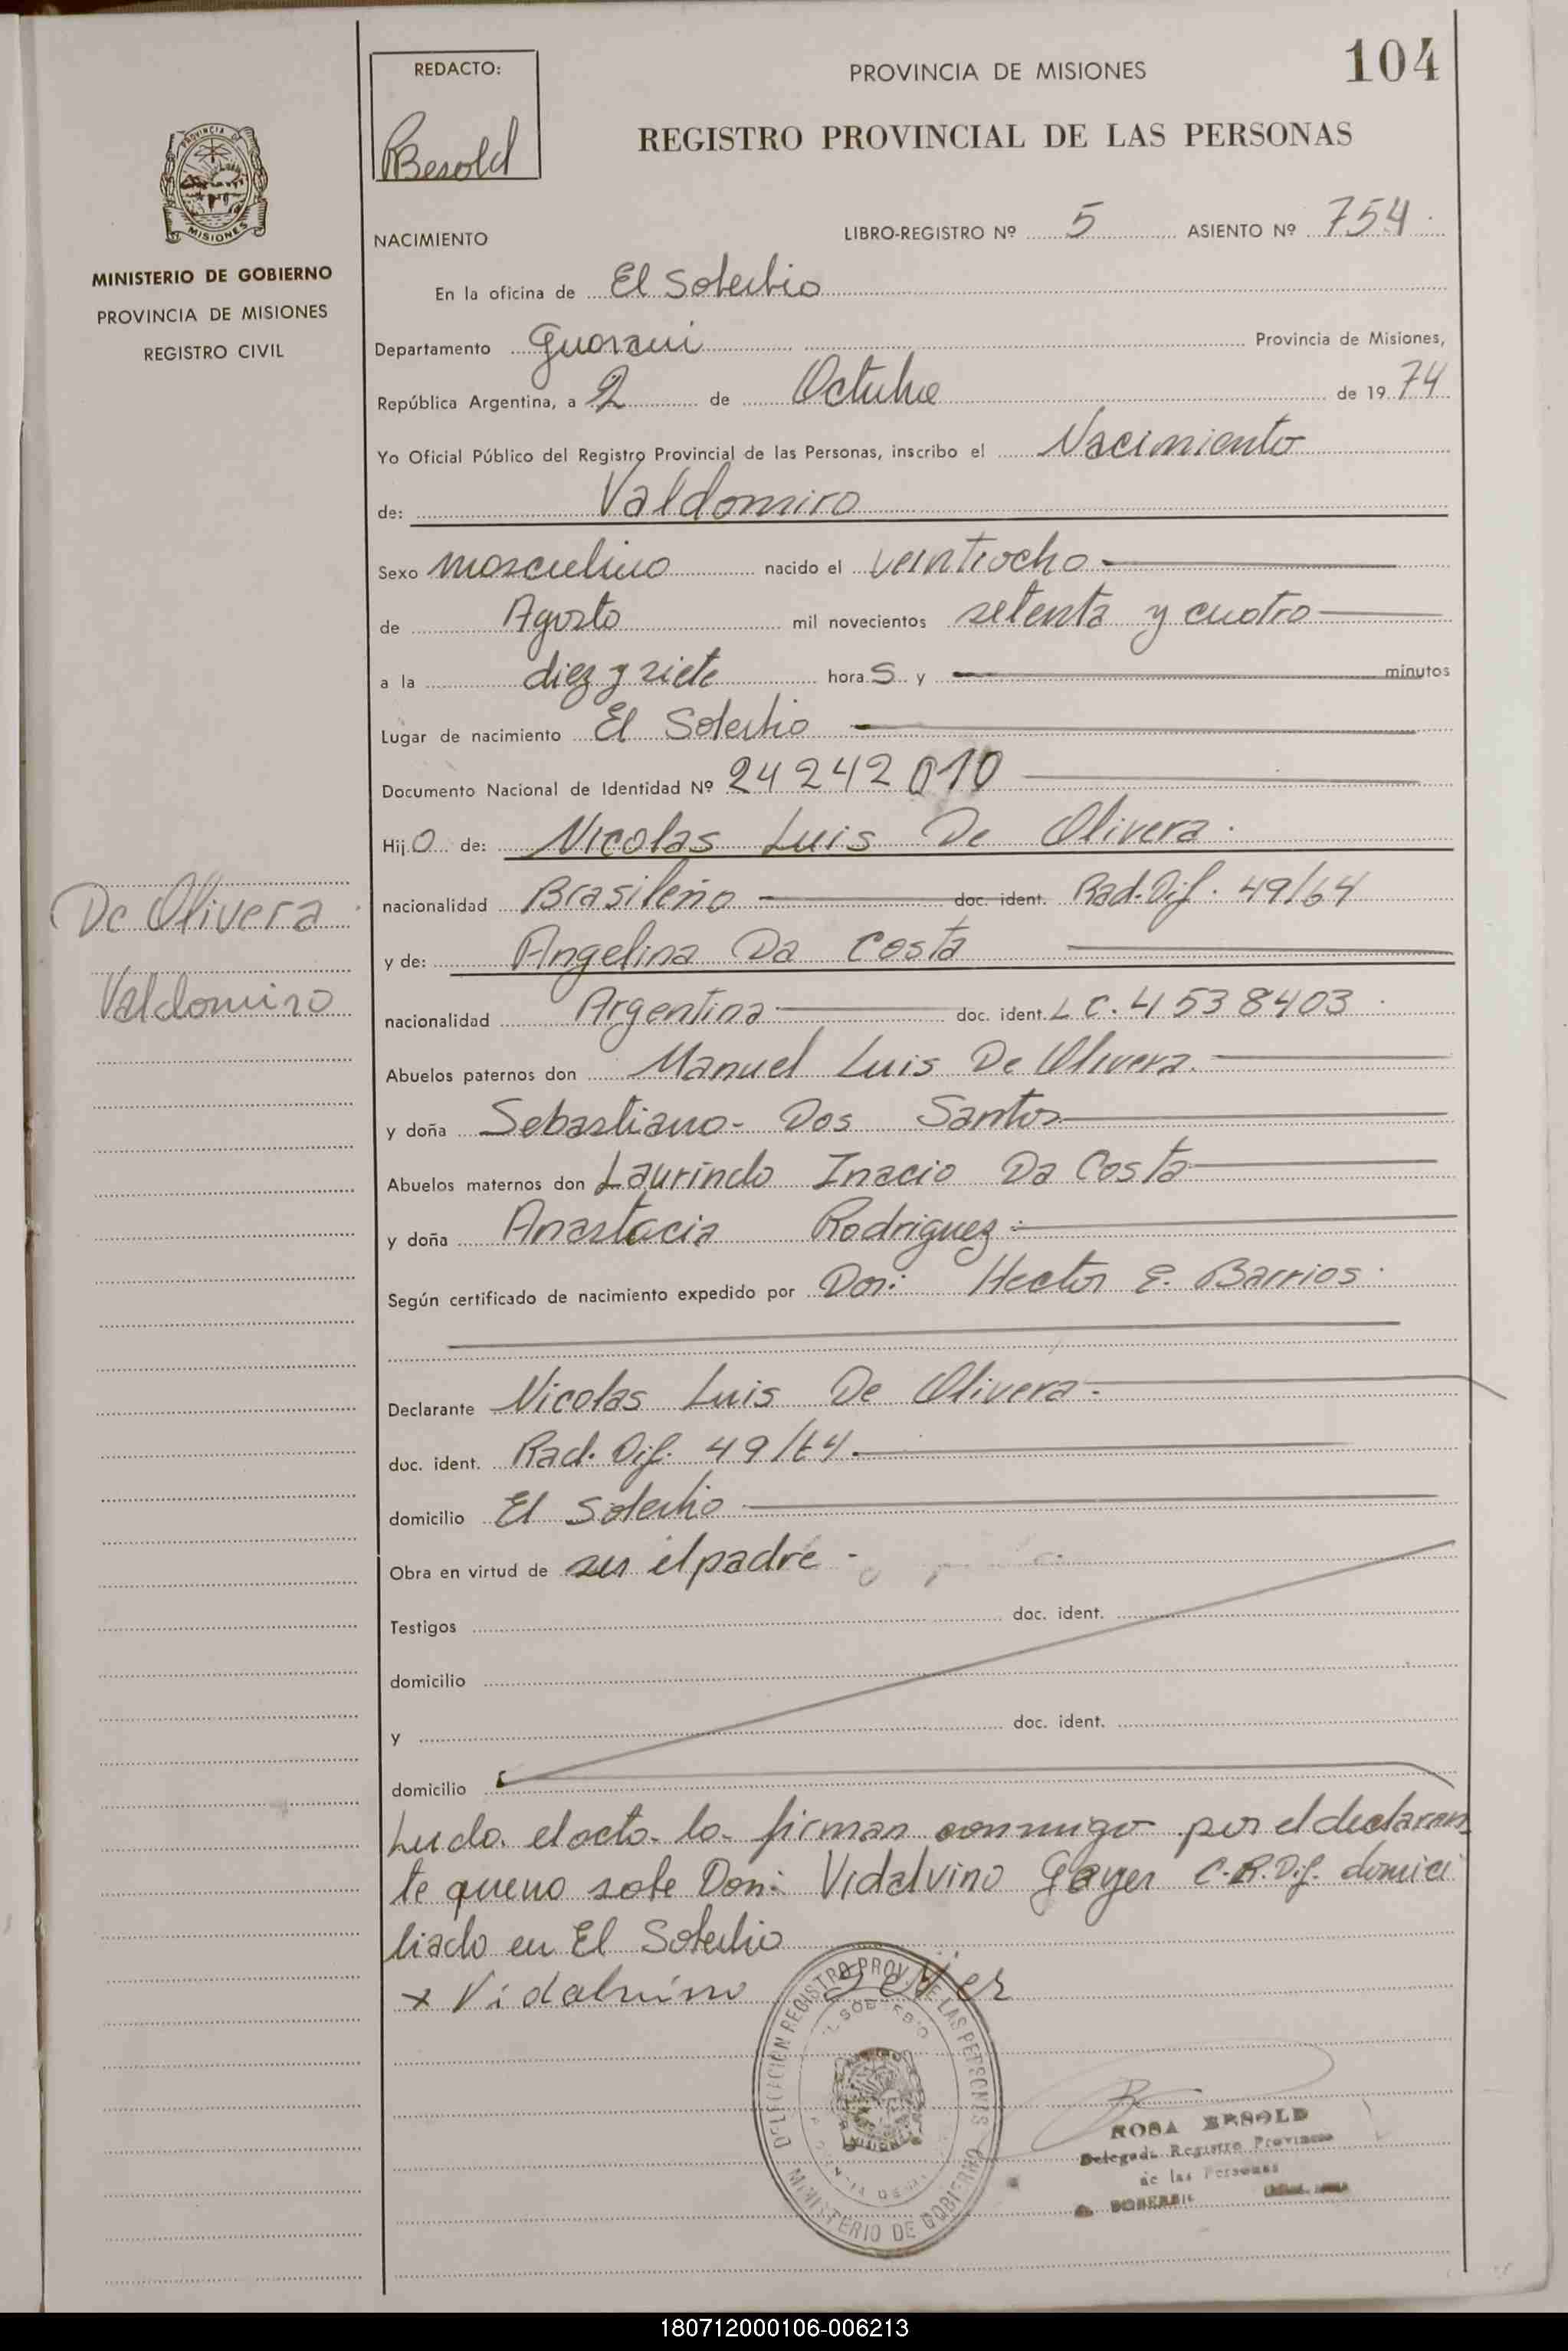 104
REDACTO:
RBesold
PROVINCIA DE MISIONES
REGISTRO PROVINCIAL DE LAS PERSONAS
PROVINCIA DE
MISIONES
MINISTERIO DE GOBIERNO
PROVINCIA DE MISIONES
REGISTRO CIVIL
NACIMIENTO LIBRO-REGISTRO Nº 5 ASIENTO Nº 754
En la oficina de El Soberbio
Departamento Guarani Provincia de Misiones,
República Argentina, a 2 de Octubre de 19 74
Yo Oficial Público del Registro Provincial de las Personas, inscribo el Nacimiento
de: Valdomiro
Sexo masculino nacido el veintiocho
de Agosto mil novecientos setenta y cuatro
a la diez y siete hora s y minutos
Lugar de nacimiento El Soberbio
Documento Nacional de Identidad Nº 24242010
Hij o de: Nicolas Luis De Olivera
nacionalidad Brasileño doc. ident. Rad. Dif. 49/64
De Olivera
y de: Angelina Da Costa
Valdomiro
nacionalidad Argentina doc. ident. L C. 4538403
Abuelos paternos don Manuel Luis De Olivera
y doña Sebastiana Dos Santos
Abuelos maternos don Laurindo Inacio Da Costa
y doña Anastacia Rodriguez
Según certificado de nacimiento expedido por Don: Hector E. Barrios
Declarante Nicolas Luis De Olivera
doc. ident. Rad. Dif. 49/64
domicilio El Soberbio
Obra en virtud de ser el padre
Testigos doc. ident.
domicilio
y doc. ident.
domicilio
Leida el acta la firman conmigo por el declaran
te que no sabe Don: Vidalvino Gayer C.R.Dif. domici
liado en El Soberbio
x Vidalvino
DELEGACION REGISTRO PROV. DE LAS PERSONAS
EL SOBERBIO
MISIONES
MINISTERIO DE GOBIERNO
ROSA BESOLD
Delegada Registro Provincia
de las Personas
SOBERBIO
180712000106-006213